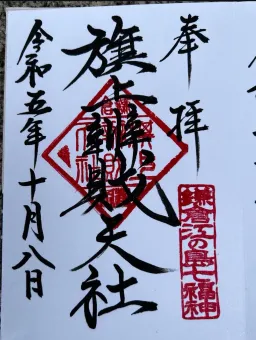 奉拝
旗上辨財天社
令和五年十月八日
鎌倉江の島七福神